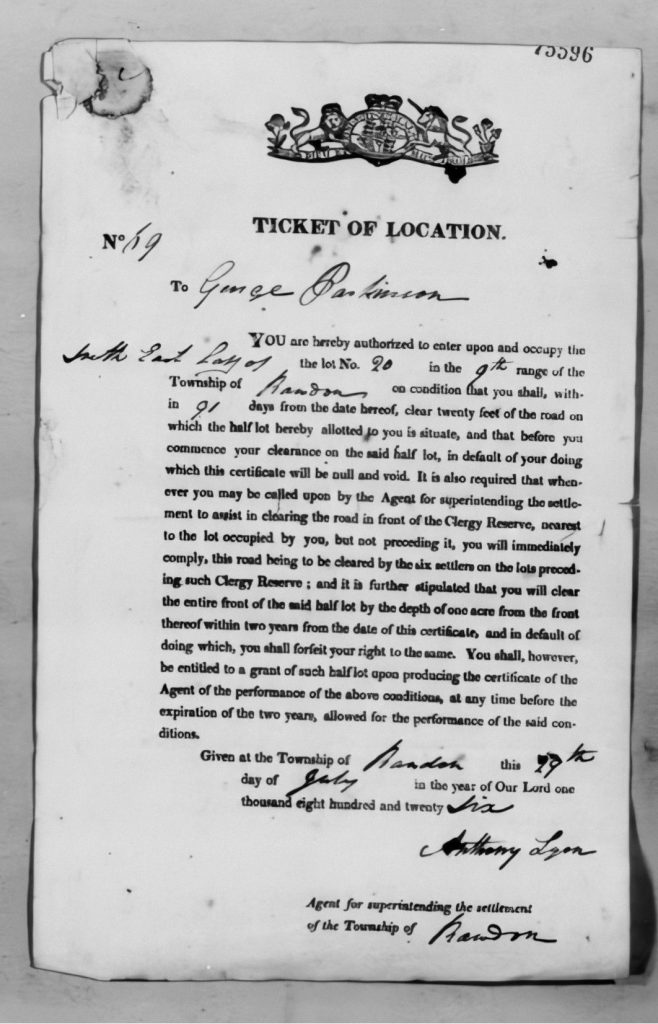 75596
TICKET OF LOCATION.
No 19
To George Parkinson
YOU are hereby authorized to enter upon and occupy the
South East half of the lot No. 20 in the 9th range of the
Township of Rawdon on condition that you shall, with-
in 91 days from the date hereof, clear twenty feet of the road on
which the half lot hereby allotted to you is situate, and that before you
commence your clearance on the said half lot, in default of your doing
which this certificate will be null and void. It is also required that when-
ever you may be called upon by the Agent for superintending the settle-
ment to assist in clearing the road in front of the Clergy Reserve, nearest
to the lot occupied by you, but not preceding it, you will immediately
comply, this road being to be cleared by the six settlers on the lots preced-
ing such Clergy Reserve; and it is further stipulated that you will clear
the entire front of the said half lot by the depth of one acre from the front
thereof within two years from the date of this certificate, and in default of
doing which, you shall forfeit your right to the same. You shall, however,
be entitled to a grant of such half lot upon producing the certificate of the
Agent of the performance of the above conditions, at any time before the
expiration of the two years, allowed for the performance of the said con-
ditions.
Given at the Township of Rawdon this 29th
day of July in the year of Our Lord one
thousand eight hundred and twenty six
Anthony Lyon
Agent for superintending the settlement
of the Township of Rawdon